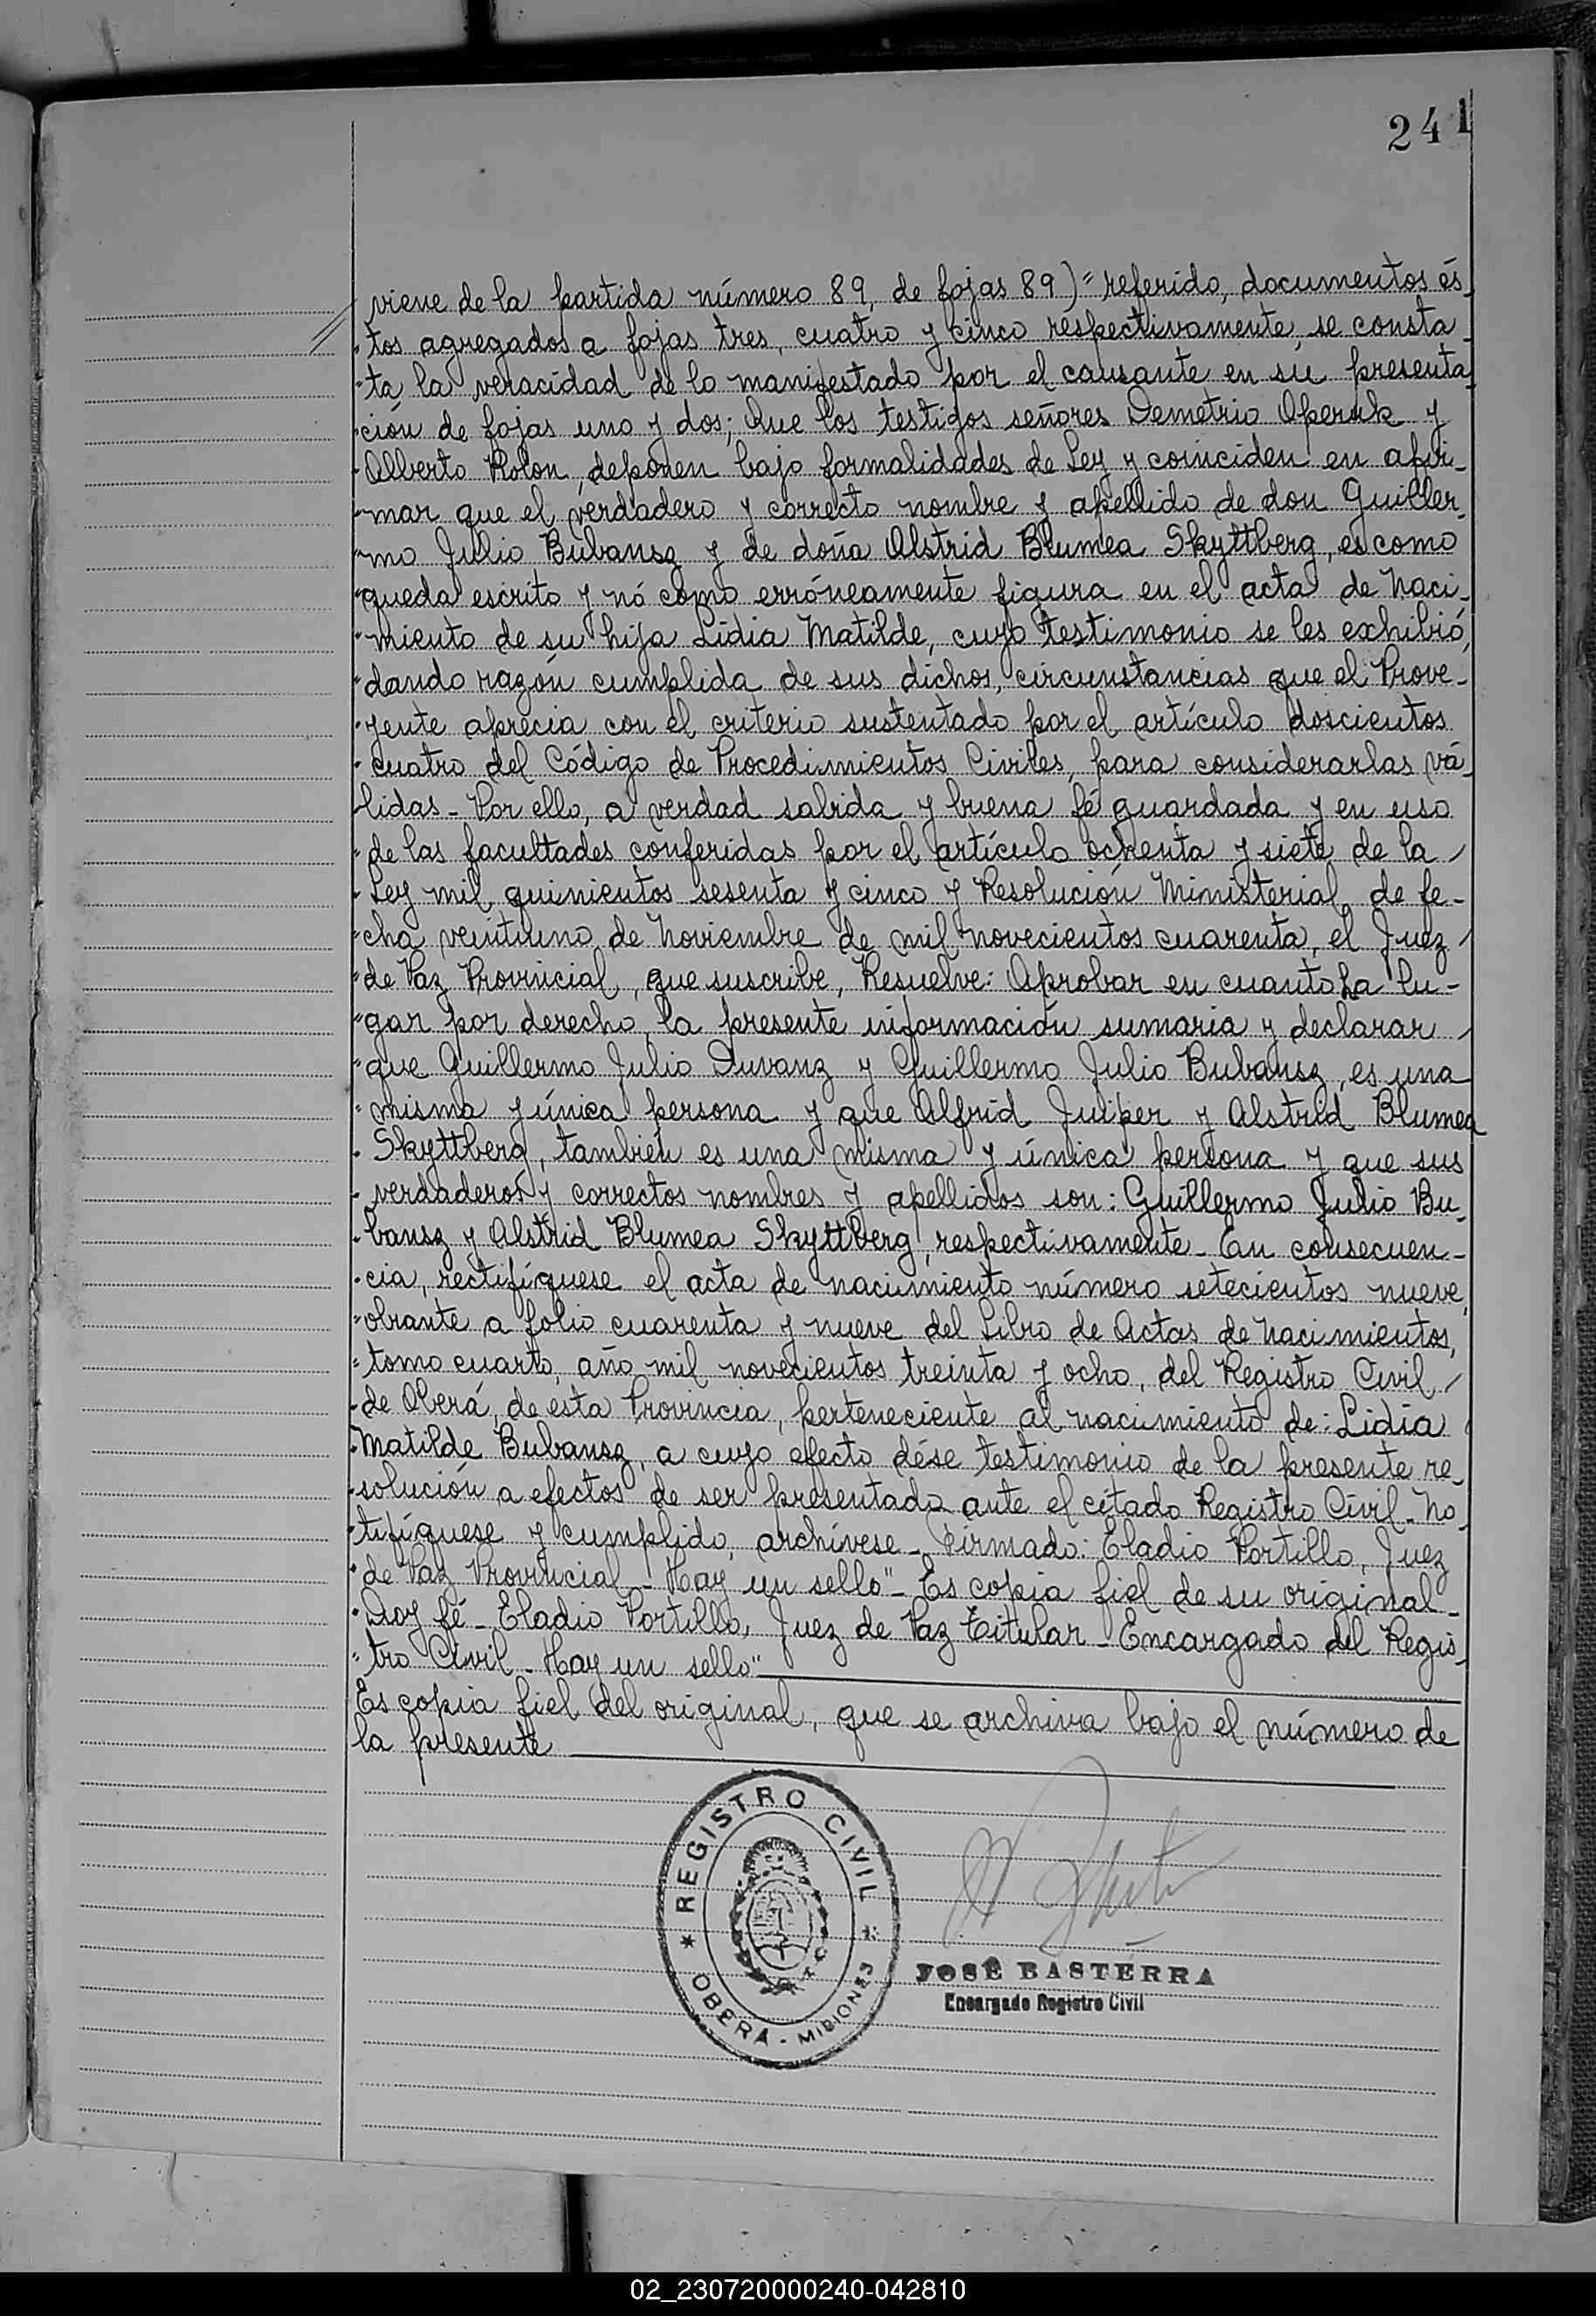 241
viene de la partida número 89, de fojas 89)" referido, documentos és-
"tos agregados a fojas tres, cuatro y cinco respectivamente, se consta-
"ta la veracidad de lo manifestado por el causante en su presenta-
"ción de fojas uno y dos; Que los testigos señores Demetrio Operuk y
"Alberto Rolon, deponen bajo formalidades de Ley y coinciden en afir-
"mar que el verdadero y correcto nombre y apellido de don Guiller-
"mo Julio Bubansz y de doña Alstrid Blumea Skyttberg, es como
"queda escrito y nó como erróneamente figura en el acta de Naci-
"miento de su hija Lidia Matilde, cuyo testimonio se les exhibió,
"dando razón cumplida de sus dichos, circunstancias que el Prove-
"yente aprecia con el criterio sustentado por el artículo doscientos
"cuatro del Código de Procedimientos Civiles, para considerarlas vá-
"lidas - Por ello, a verdad sabida y buena fé guardada y en uso
"de las facultades conferidas por el artículo ochenta y siete de la /
"Ley mil quinientos sesenta y cinco y Resolución Ministerial, de fe-
"cha veintiuno de Noviembre de mil novecientos cuarenta, el Juez /
"de Paz Provincial, que suscribe, Resuelve: Aprobar en cuanto ha lu-
"gar por derecho, la presente información sumaria y declarar /
"que Guillermo Julio Duvanz y Guillermo Julio Bubansz, es una
"misma y única persona y que Alfrid Juiper y Alstrid Blumea
"Skyttberg, también es una misma y única persona y que sus
"verdaderos y correctos nombres y apellidos son: Guillermo Julio Bu-
"bansz y Alstrid Blumea Skyttberg, respectivamente - En consecuen-
"cia, rectifíquese el acta de nacimiento número setecientos nueve,
"obrante a folio cuarenta y nueve del Libro de Actas de Nacimientos,
"tomo cuarto, año mil novecientos treinta y ocho, del Registro Civil /
"de Oberá, de esta Provincia, perteneciente al nacimiento de: Lidia
"Matilde Bubansz, a cuyo efecto dése testimonio de la presente re-
"solución a efectos de ser presentado ante el citado Registro Civil - No-
"tifíquese y cumplido, archívese - Firmado: Eladio Portillo, Juez
"de Paz Provincial - Hay un sello" - Es copia fiel de su original -
"Doy fé - Eladio Portillo, Juez de Paz Titular - Encargado del Regis-
"tro Civil - Hay un sello"
Es copia fiel del original, que se archiva bajo el número de
la presente
REGISTRO CIVIL
* OBERA - MISIONES *
JOSÉ BASTERRA
Encargado Registro Civil
02_230720000240-042810